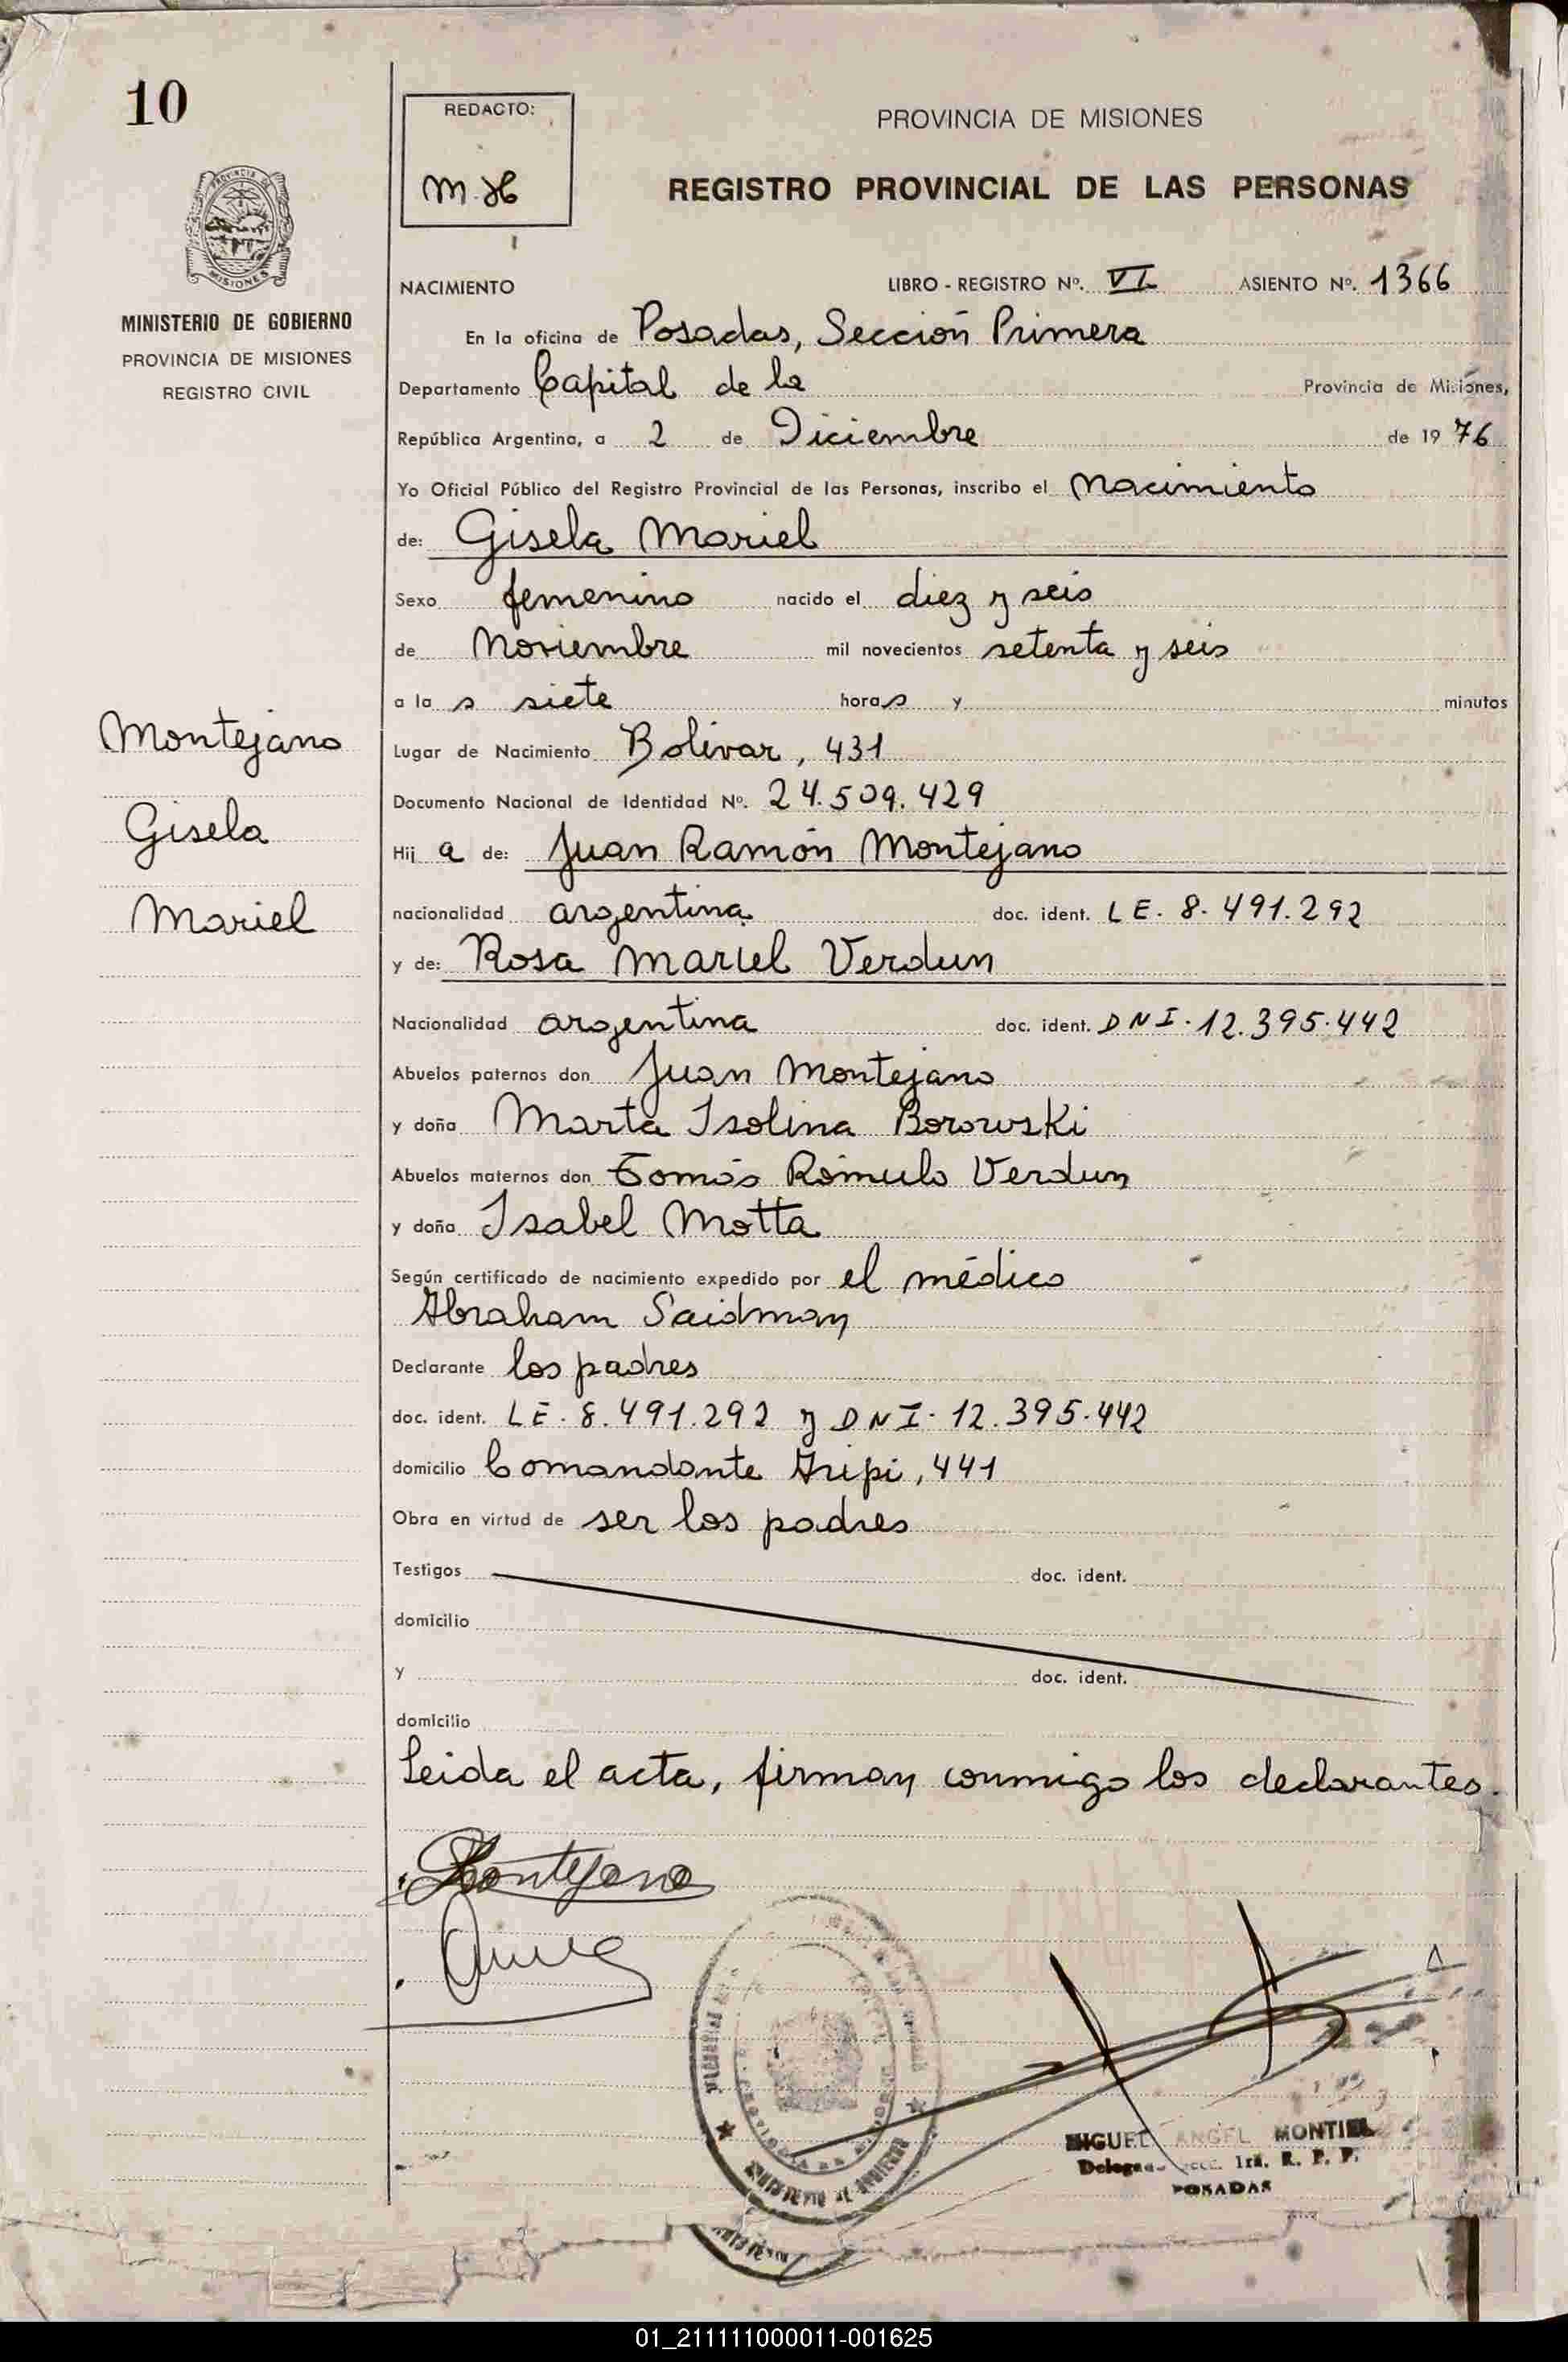 10
REDACTO:
M.H
PROVINCIA DE MISIONES
REGISTRO PROVINCIAL DE LAS PERSONAS
PROVINCIA DE
MISIONES
MINISTERIO DE GOBIERNO
PROVINCIA DE MISIONES
REGISTRO CIVIL
NACIMIENTO LIBRO - REGISTRO Nº. VI ASIENTO Nº. 1366
En la oficina de Posadas, Sección Primera
Departamento Capital de la Provincia de Misiones,
República Argentina, a 2 de Diciembre de 19 76
Yo Oficial Público del Registro Provincial de las Personas, inscribo el Nacimiento
de: Gisela Mariel
Sexo femenino nacido el diez y seis
de Noviembre mil novecientos setenta y seis
a la s siete horas y minutos
Lugar de Nacimiento Bolivar, 431
Documento Nacional de Identidad Nº. 24.509.429
Hij a de: Juan Ramón Montejano
nacionalidad argentina doc. ident. LE. 8.491.292
y de: Rosa Mariel Verdun
Nacionalidad argentina doc. ident. DNI. 12.395.442
Abuelos paternos don Juan Montejano
y doña Marta Isolina Borowski
Abuelos maternos don Tomás Rómulo Verdun
y doña Isabel Motta
Según certificado de nacimiento expedido por el médico
Abraham Saidman
Declarante los padres
doc. ident. LE. 8.491.292 y DNI. 12.395.442
domicilio Comandante Aripi, 441
Obra en virtud de ser los padres
Testigos doc. ident.
domicilio
y doc. ident.
domicilio
Leida el acta, firman conmigo los declarantes.
Montejano
Gisela
Mariel
Montejano
MINISTERIO DE GOBIERNO
MIGUEL ANGEL MONTIEL
Delegado 1ra. R. P. P.
POSADAS
01_211111000011-001625